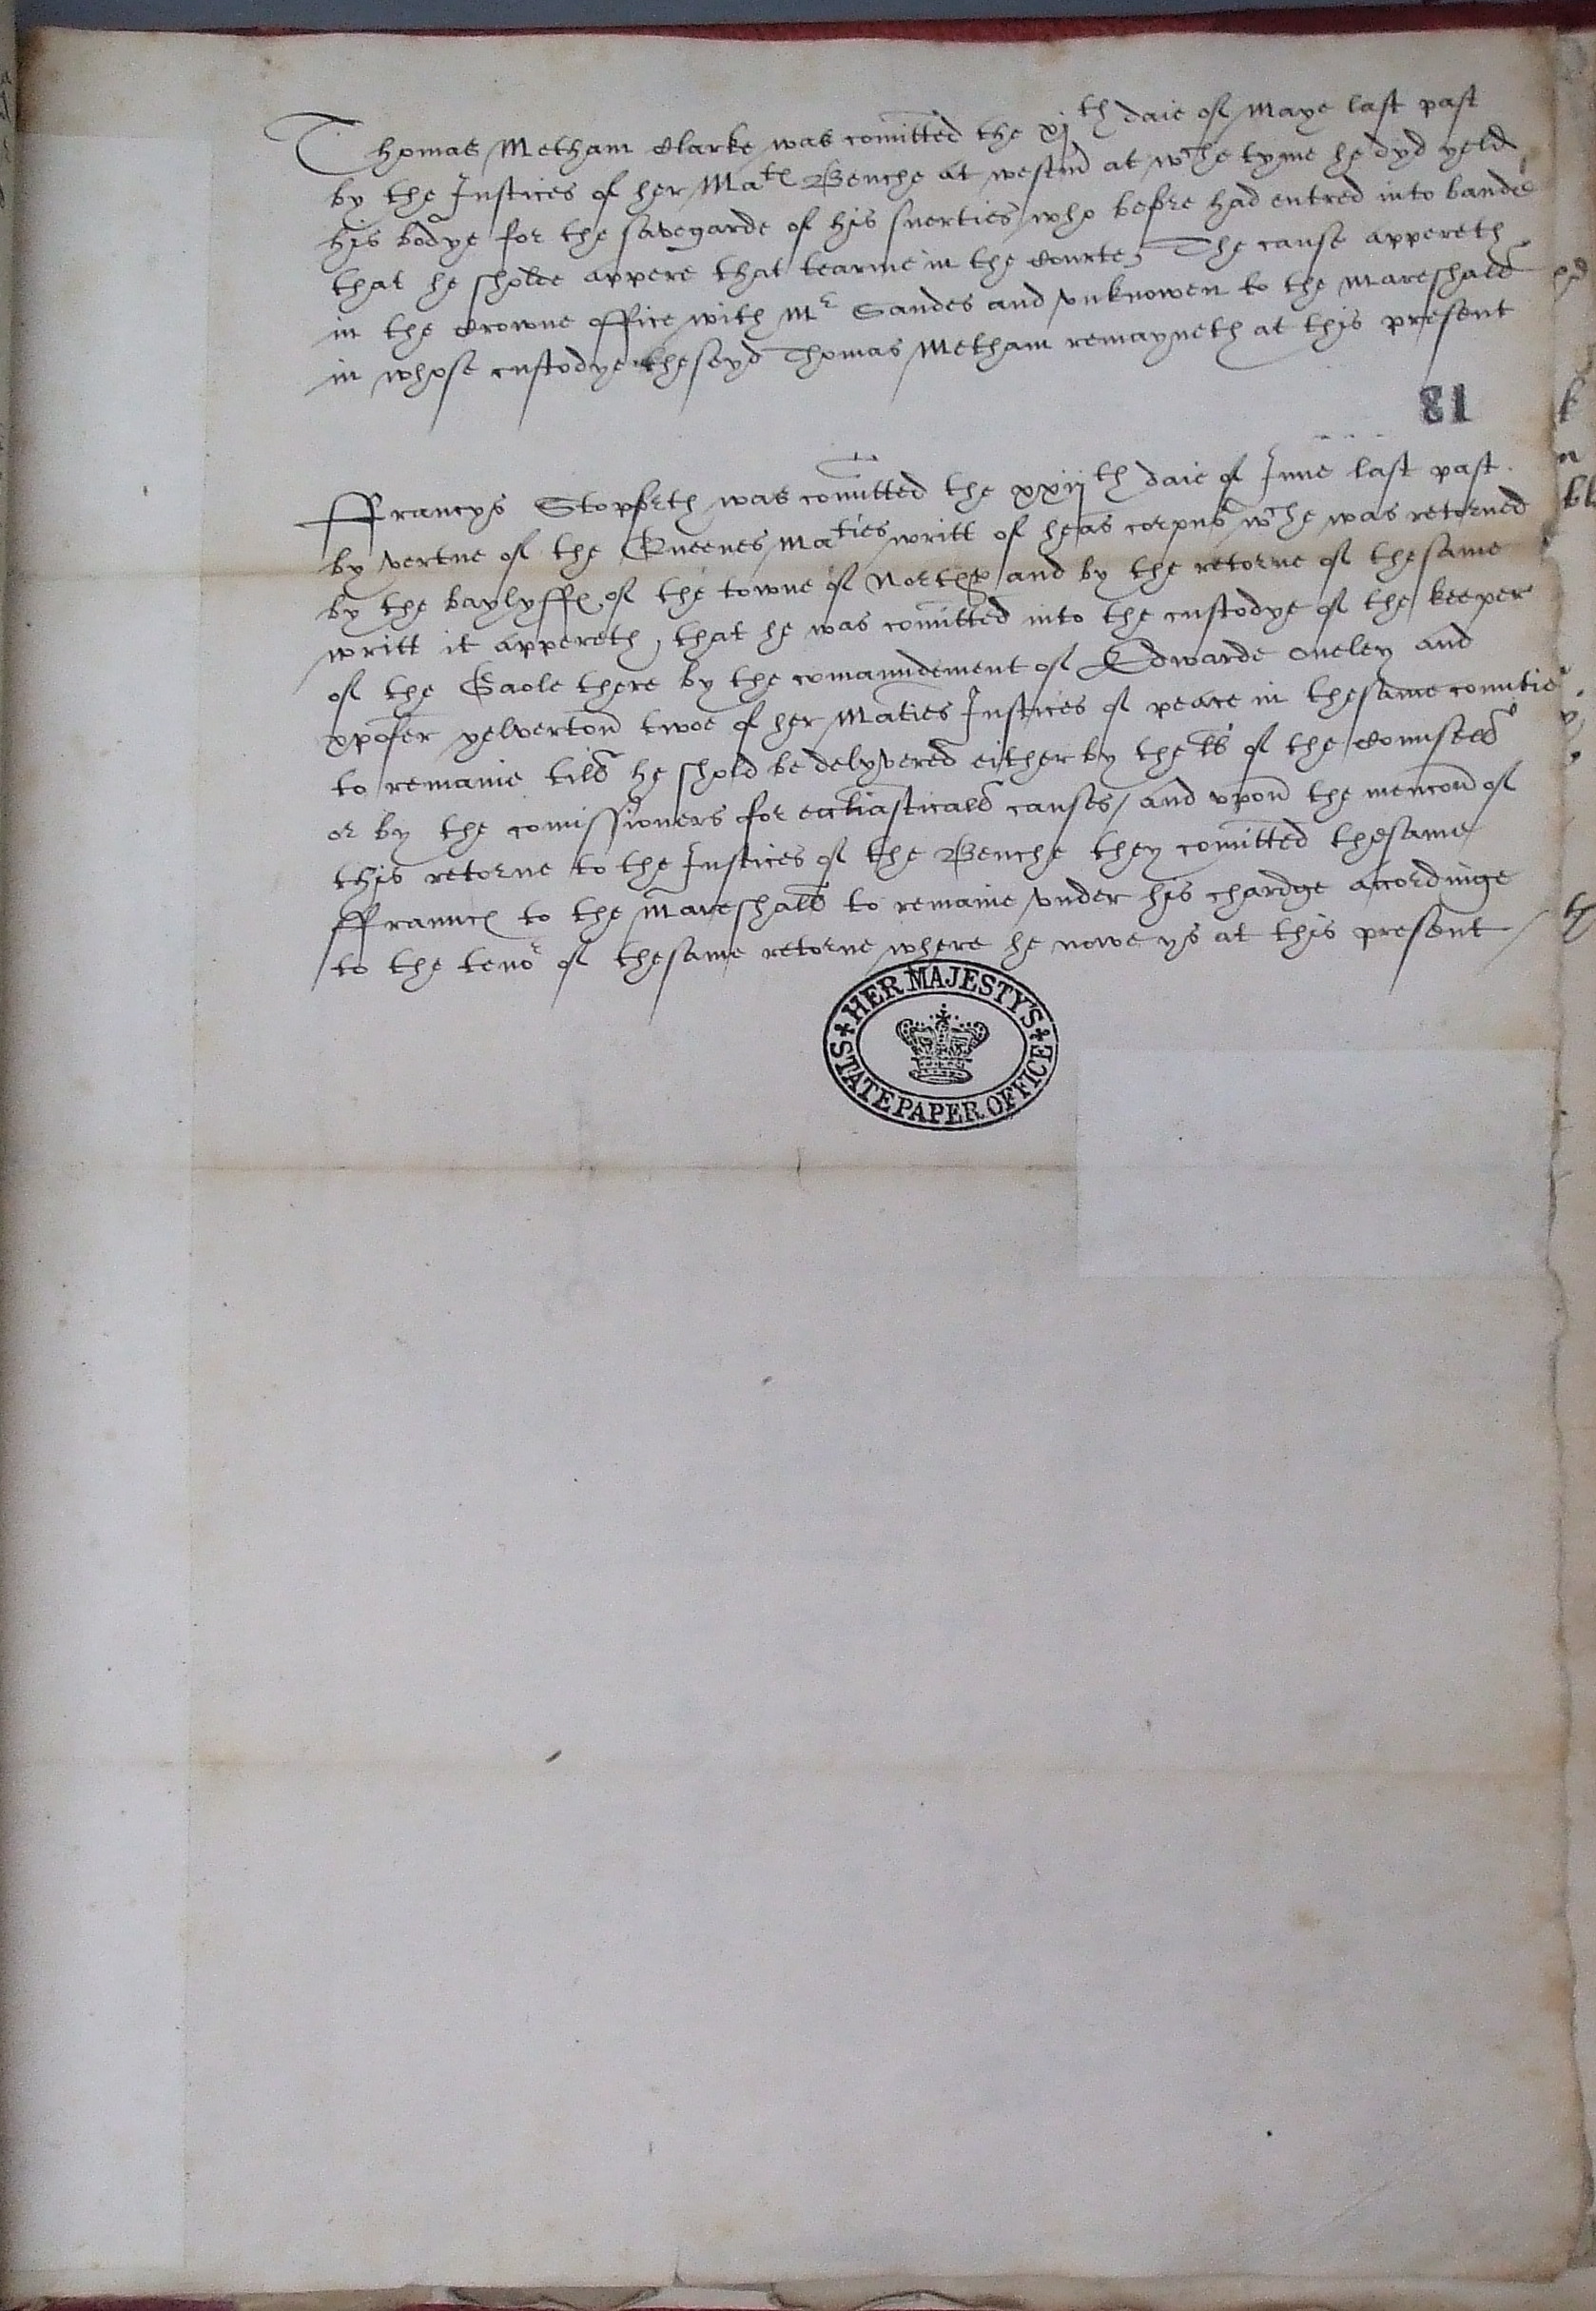 Thomas Metham Clarke was comitted the xjth daie of Maye last past
by the Justices of her Mates Benche at westm at wche tyme he dyd yeld
his bodye for the savegarde of his suerties who before had entred into bandes
that he sholde appere that tearme in the Courte, The cause appereth
in the Crowne office with Mr Sandes and vnknowen to the Mareshall
in whose custodye theseyd Thomas Metham remayneth at this present
81
ffrancys Stopforth was comitted the xxijth daie of June last past
by vertue of the Queenes Maties writt of heas corpus wche was retorned
by the baylyffes of the towne of Northt and by the retorne of thesame
writt it appereth, that he was comitted into the custodye of the keeper
of the Gaole there by the comaundement of Edwarde Oneley and
xpofer yelverton twoe of her Maties Justices of peace in thesame countie
to remaine till he shold be delyvered either by the lls of the Counsell
or by the comissioners for eccliasticall causes / and vpon the mencon of
this retorne to the Justices of the Benche they comitted thesame
ffraunces to the Mareshall to remaine vnder his chardge accordinge
to the tenor of thesame retorne where he nowe ys at this present /
HER MAJESTY'S
STATE PAPER OFFICE